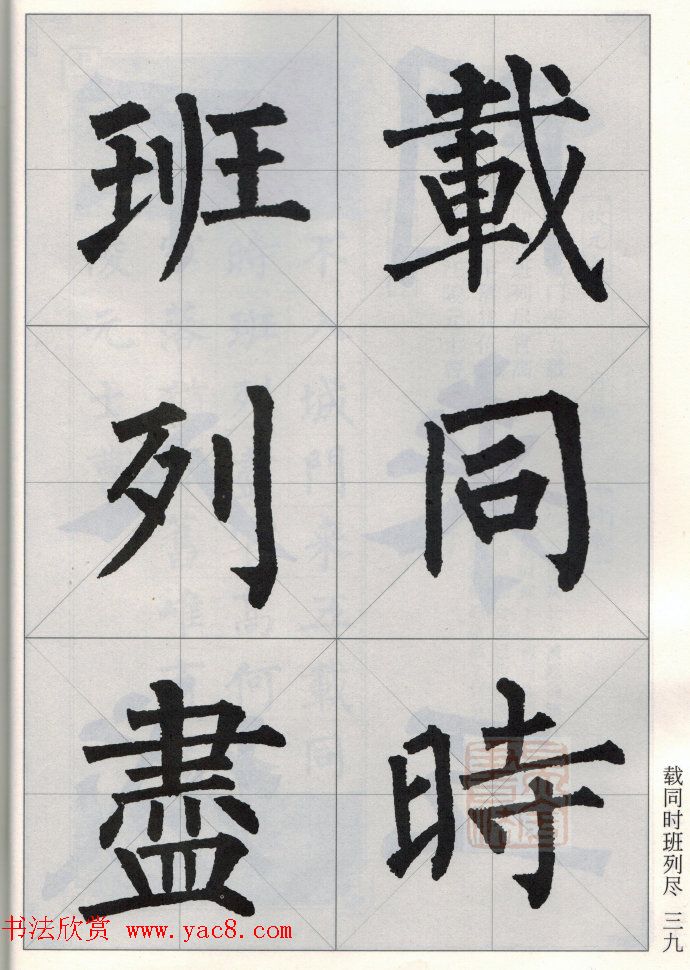 載同時
班列盡
载同时班列尽 三九
书法欣赏 www.yac8.com